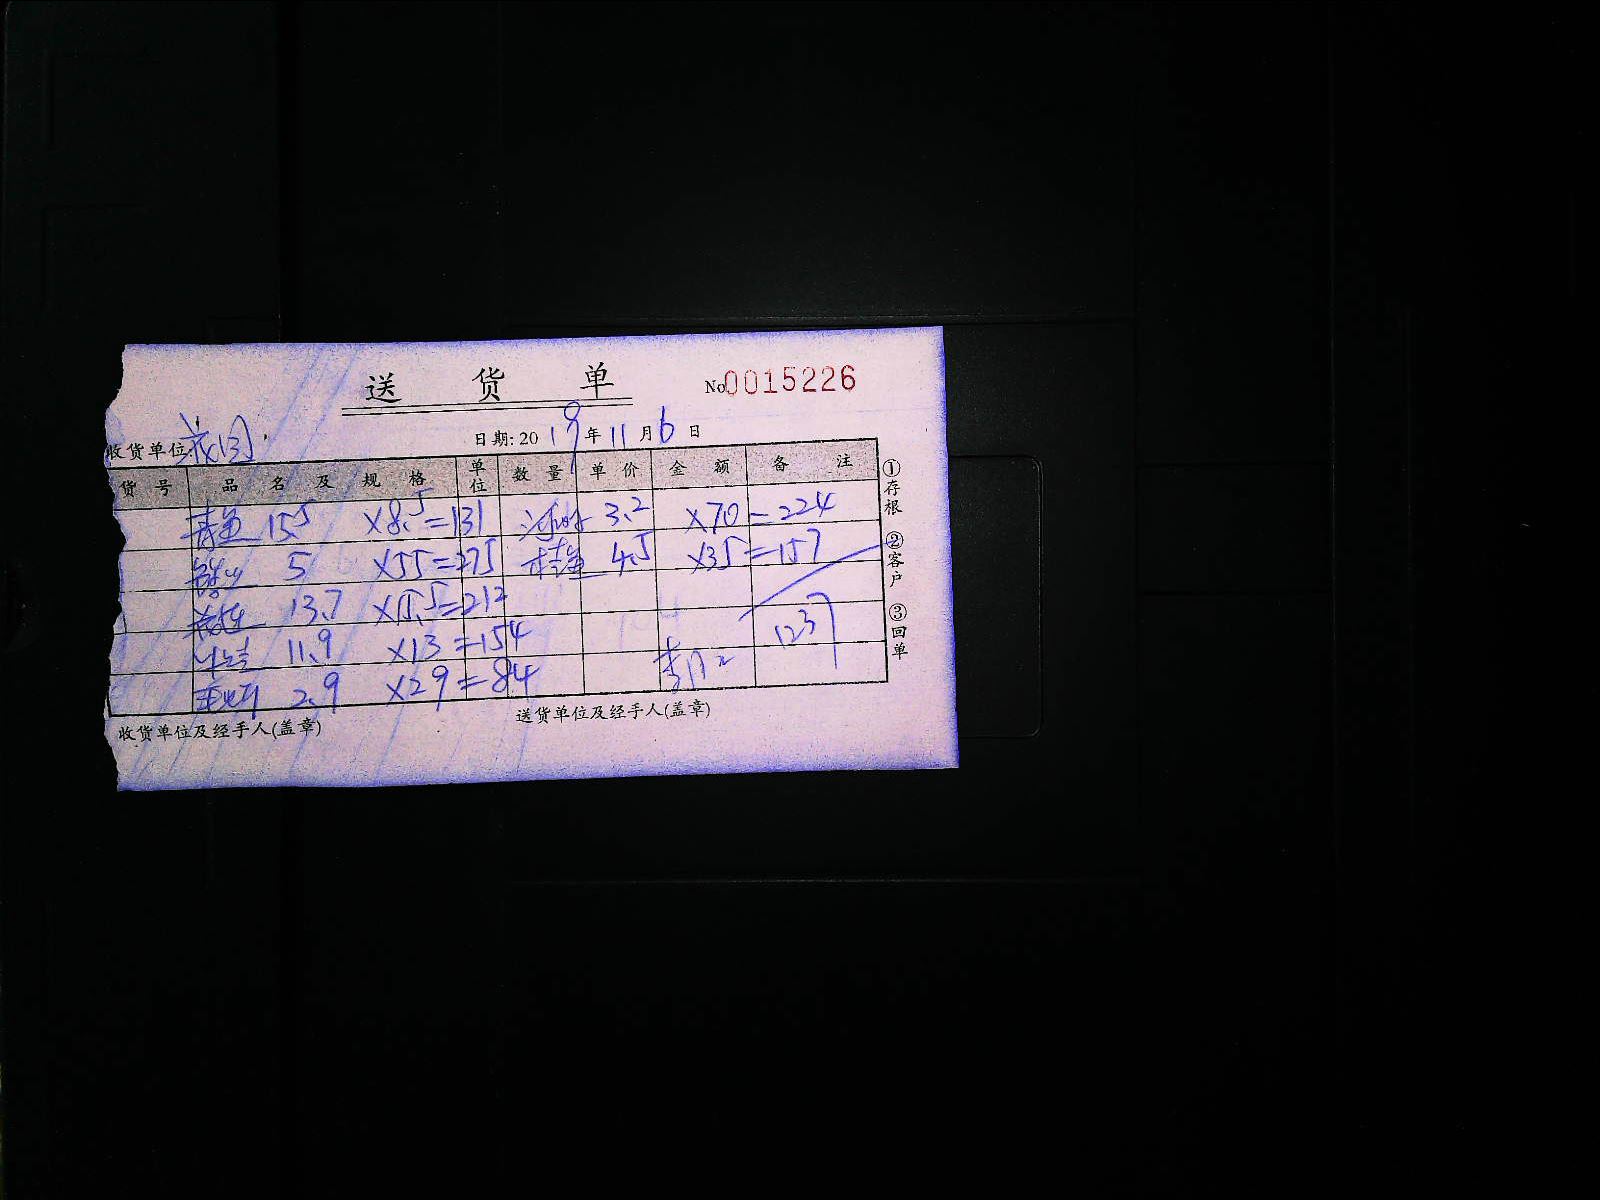 送 货 单
No 0015226
收货单位: 花园
日期: 2019年11月6日
货号 品名及规格 单位 数量 单价 金额 备注
青鱼 15.5 ×8.5=131 河虾 3.2 ×70=224
5 ×55=275 桂鱼 4.5 ×35=157
13.7 ×15.5=212
11.9 ×13=154 1237
2.9 ×29=84
收货单位及经手人(盖章)
送货单位及经手人(盖章)
①存根
②客户
③回单